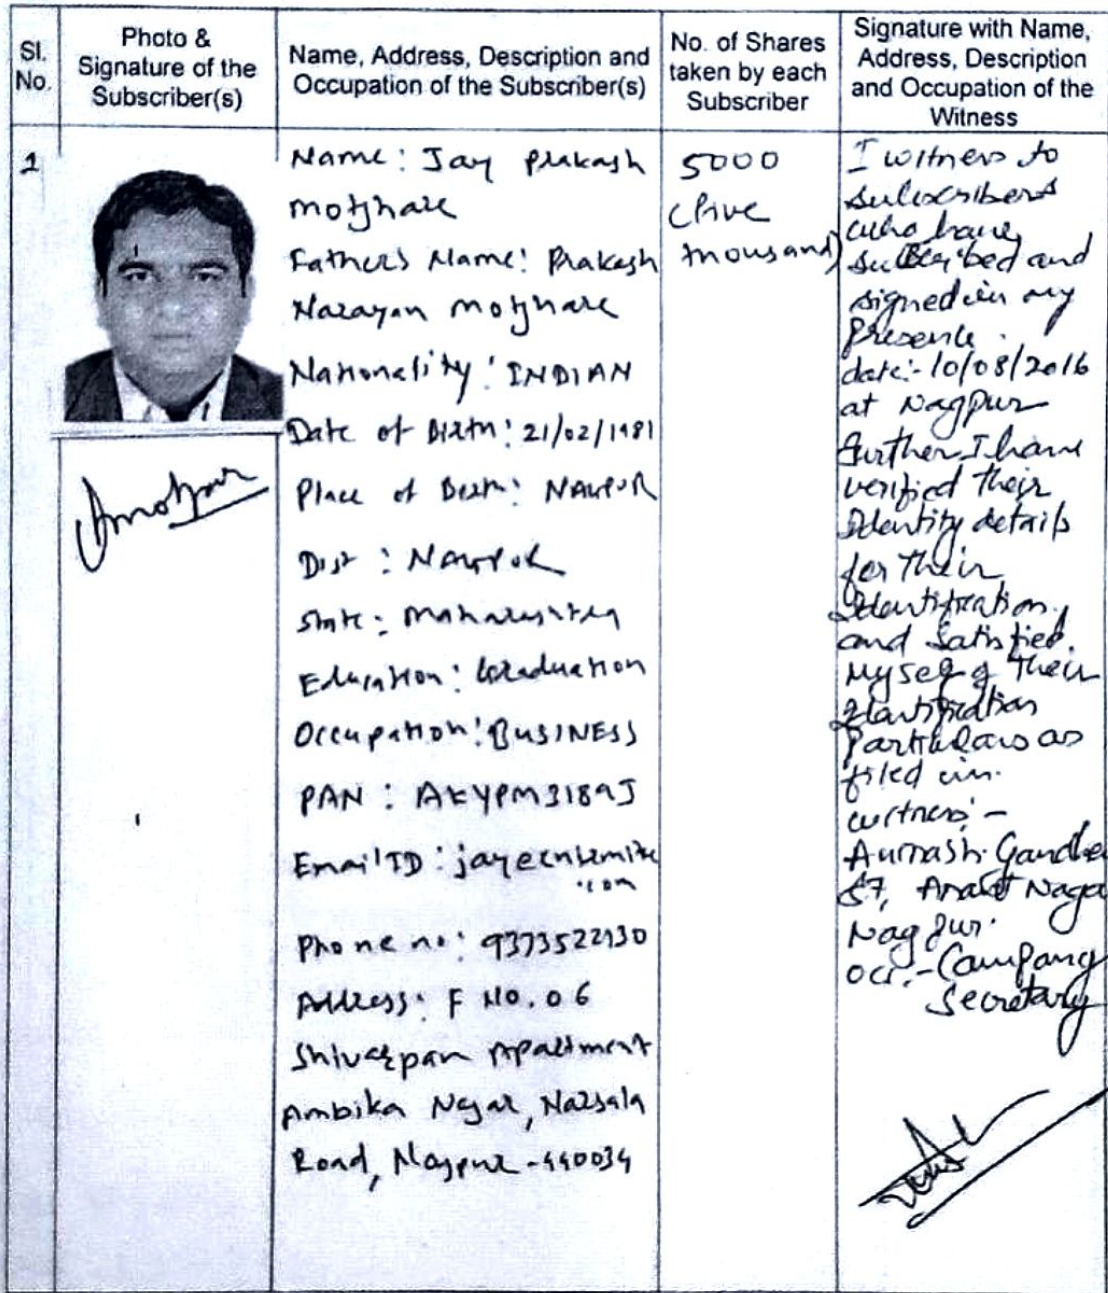 Sl. No.
Photo & Signature of the Subscriber(s)
Name, Address, Description and Occupation of the Subscriber(s)
No. of Shares taken by each Subscriber
Signature with Name, Address, Description and Occupation of the Witness
1
Name: Jay Prakash
Motghare
Father's Name: Prakash
Narayan Motghare
Nationality: INDIAN
Date of Birth: 21/02/1981
Place of Birth: NAGPUR
Dist: NAGPUR
State: Maharashtra
Education: Graduation
Occupation: BUSINESS
PAN: AKYPM3189J
Email ID:
.com
Phone no: 9373522930
Address: F NO. 06
Shivarpan Apartment
Ambika Nagar, Narsala
Road, Nagpur-440034
5000
(five
thousand)
I witness to
subscribers
who have
subscribed and
signed in my
Presence.
date:- 10/08/2016
at Nagpur
Further I have
verified their
Identity details
for their
Identification
and Satisfied
myself of their
Identification
Particulars as
filed in.
witness:-
Gandhe
57, Nagar
Nagpur.
Occ:- Company
Secretary